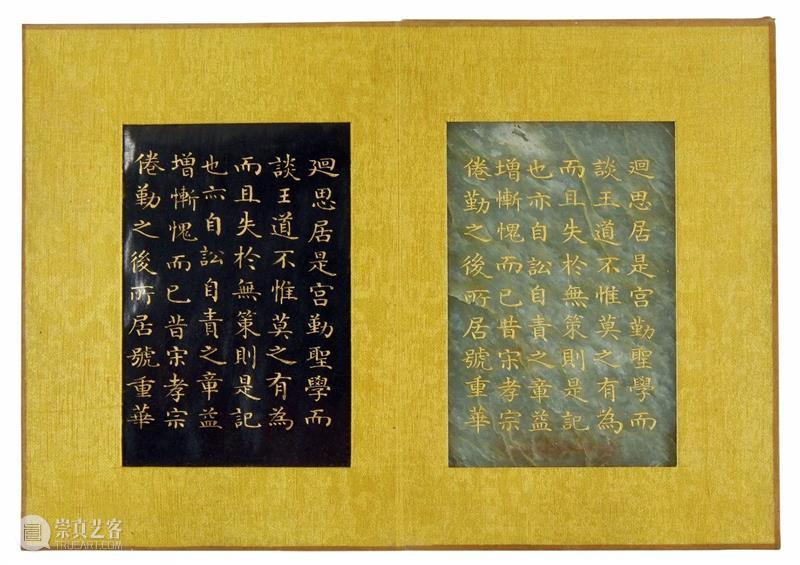 廻思居是宫勤聖學而
談王道不惟莫之有為
而且失於無策則是記
也亦自訟自責之章益
增慚愧而已昔宋孝宗
倦勤之後所居號重華
廻思居是宫勤聖學而
談王道不惟莫之有為
而且失於無策則是記
也亦自訟自責之章益
增慚愧而已昔宋孝宗
倦勤之後所居號重華
崇真艺客
TRUEART.COM